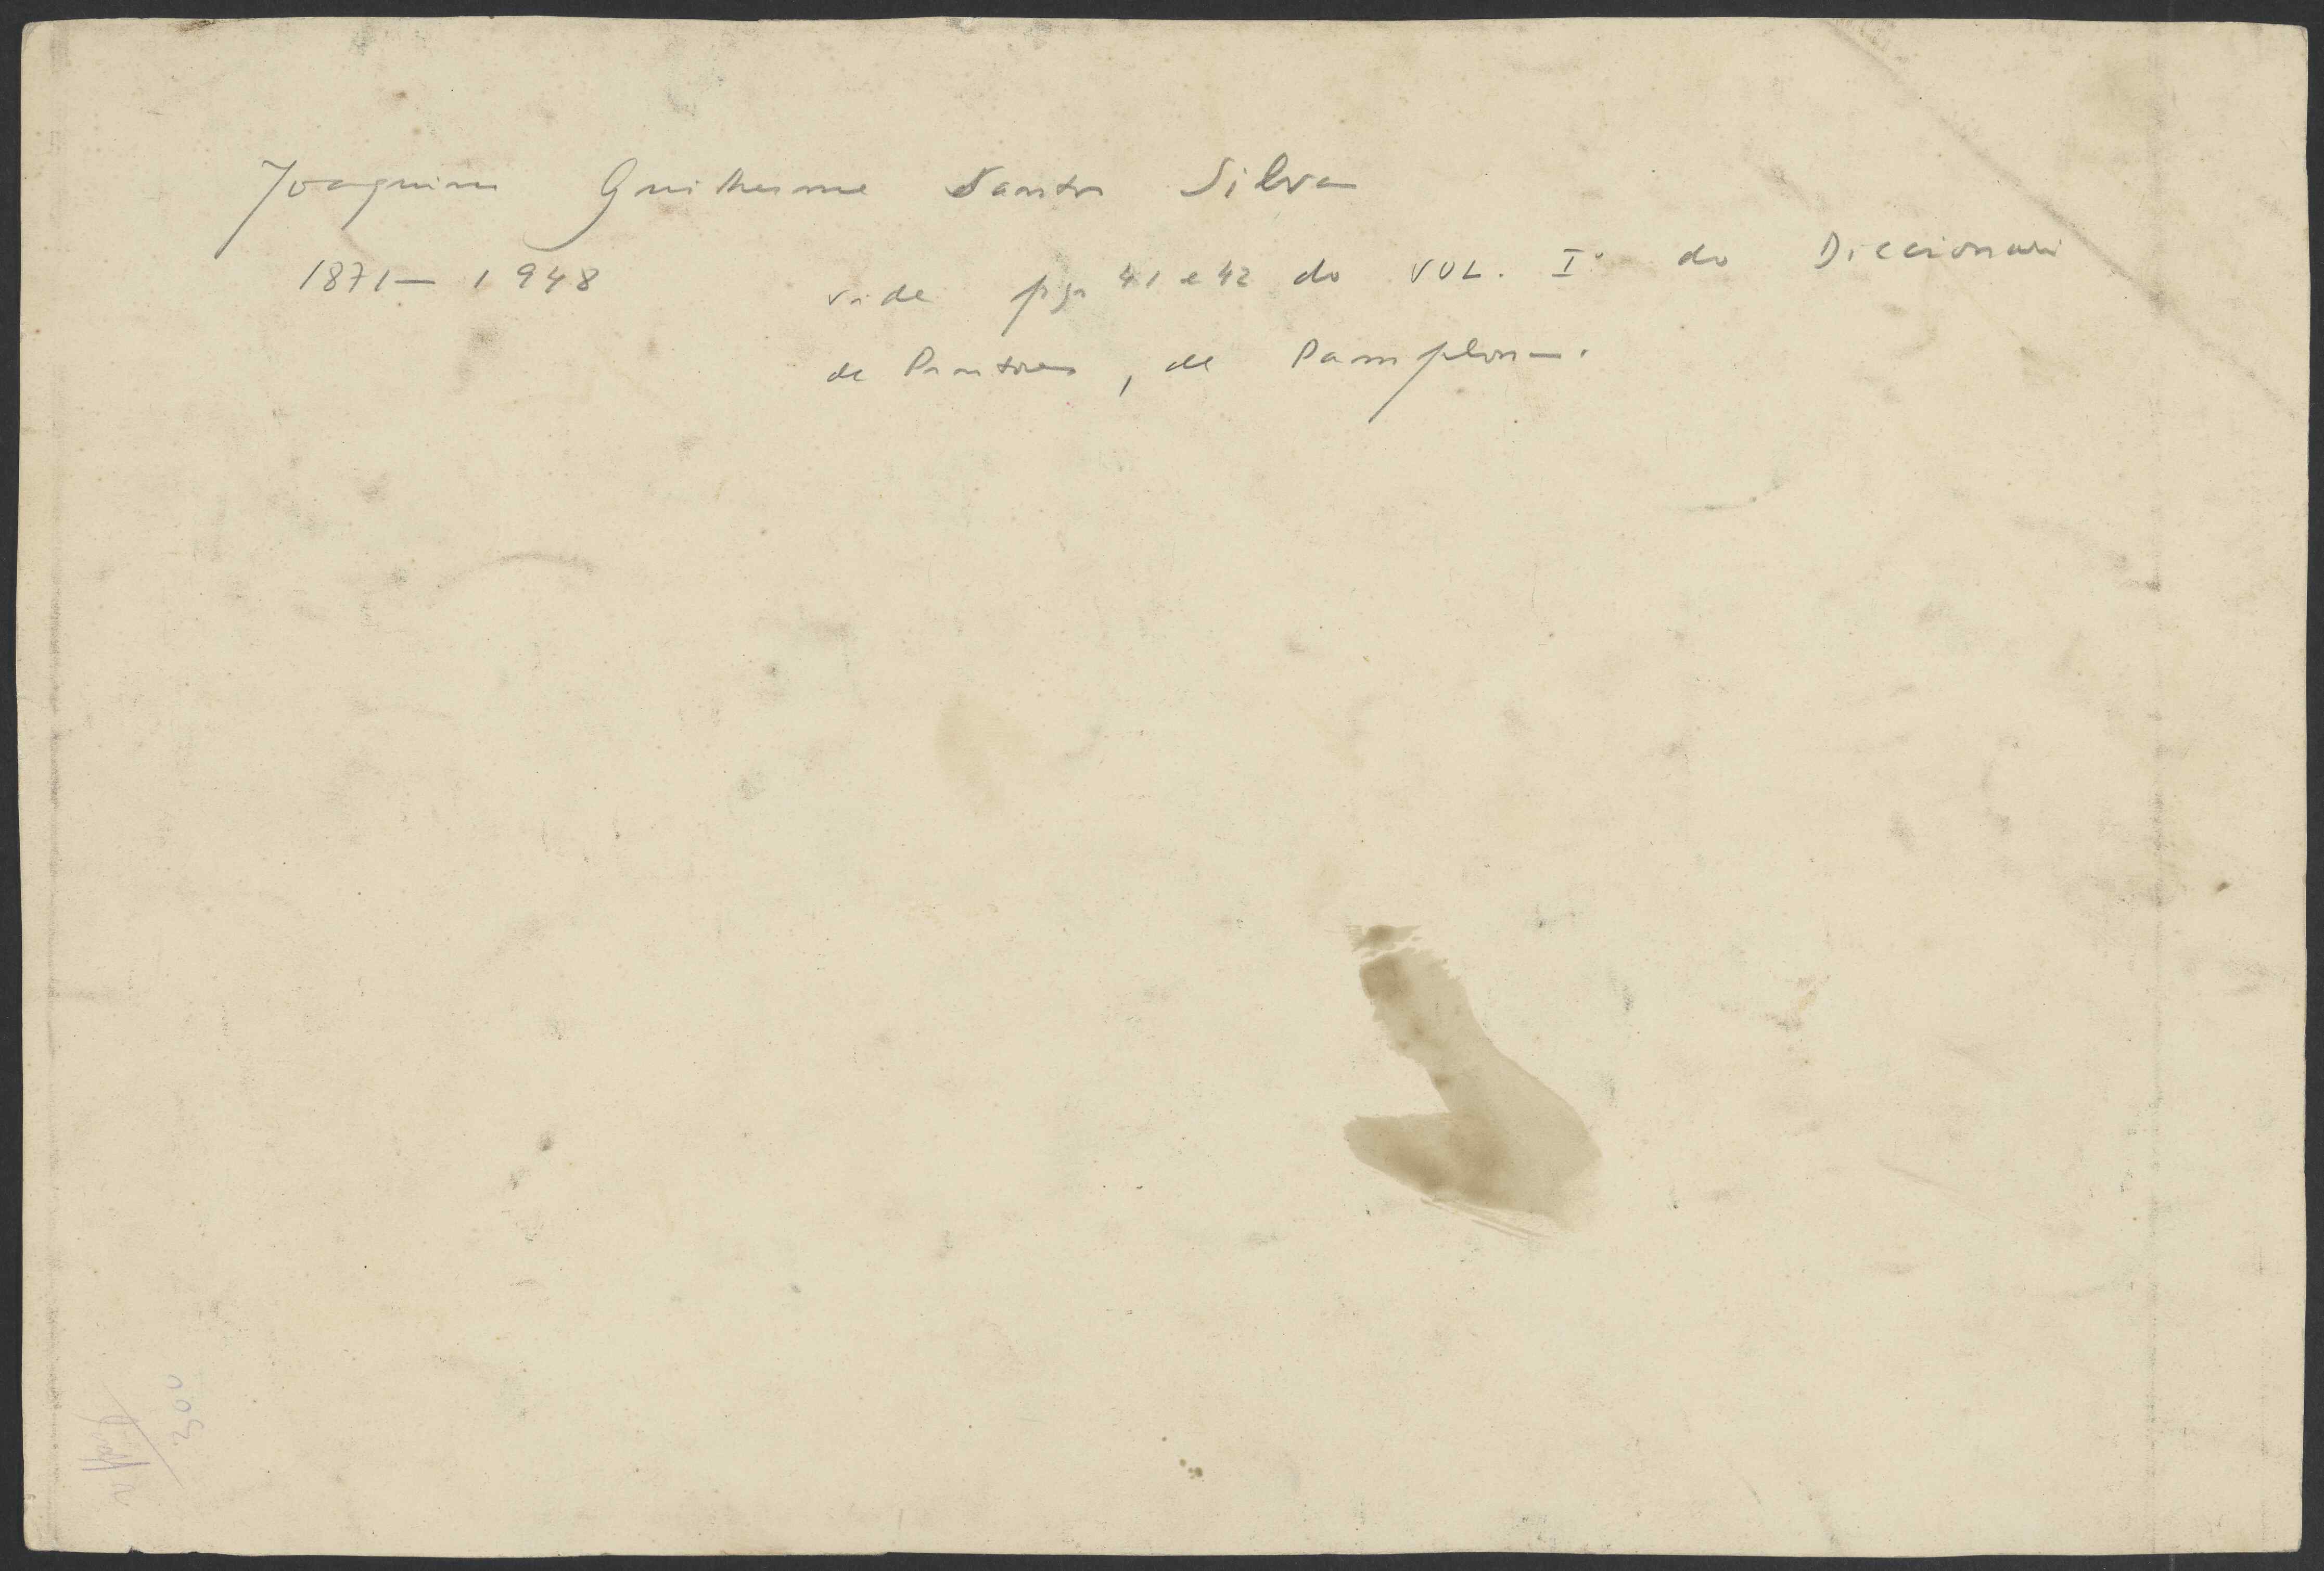 Joaquim Guilherme Santos Silva
1871 — 1948
vide pgs 41 e 42 do VOL. Iº do Diccionari
de Pintores, de Pamplona.
300